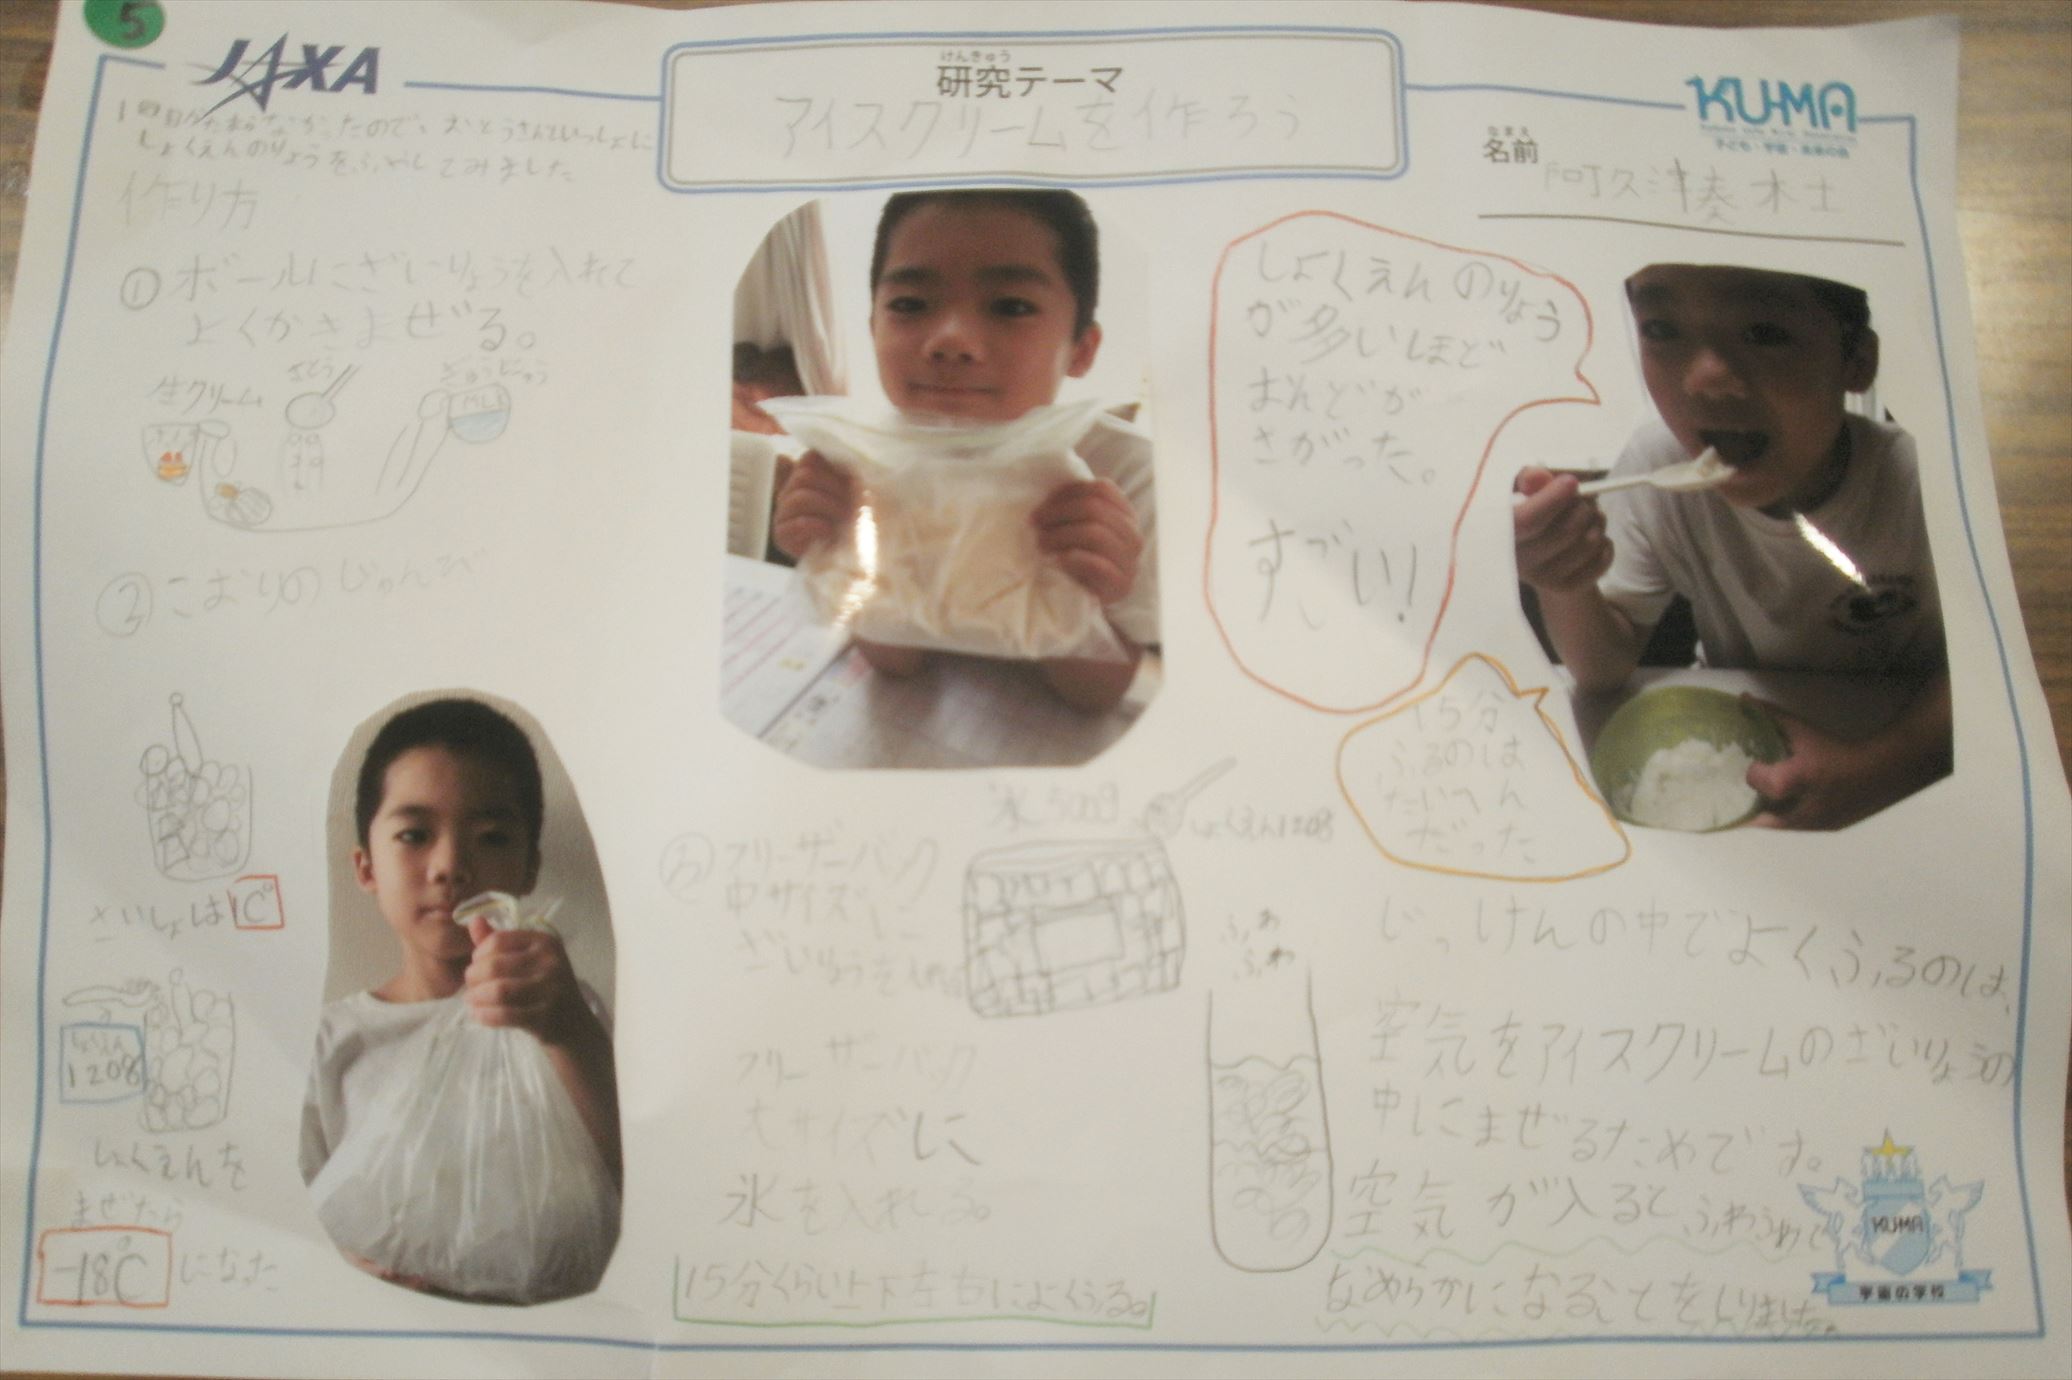 5
JAXA
けんきゅう
研究テーマ
アイスクリームを作ろう
KU-MA
子ども・宇宙・未来の会
なまえ
名前
阿久津湊木士
1回目がたまらなかったので、おとうさんといっしょに
しょくえんのりょうをふやしてみました
作り方
①ボールにざいりょうを入れて
よくかきまぜる。
生クリーム
さとう
ぎゅうにゅう
②こおりのじゅんび
さいしょは1C°
しょくえん
120g
しょくえんを
まぜたら
-18℃になった
③フリーザーバック
中サイズに
ざいりょうを入れる
氷500g
しょくえん120g
フリーザーバック
大サイズに
氷を入れる。
15分くらい上下左右によくふる。
しょくえんのりょう
が多いほど
おんどが
さがった。
すごい!
15分
ふるのは
たいへん
だった
ふわ
ふわ
じっけんの中でよくふるのは、
空気をアイスクリームのざいりょうの
中にまぜるためです。
空気が入ると、ふわふわで
なめらかになることをしりました。
KUMA
宇宙の学校